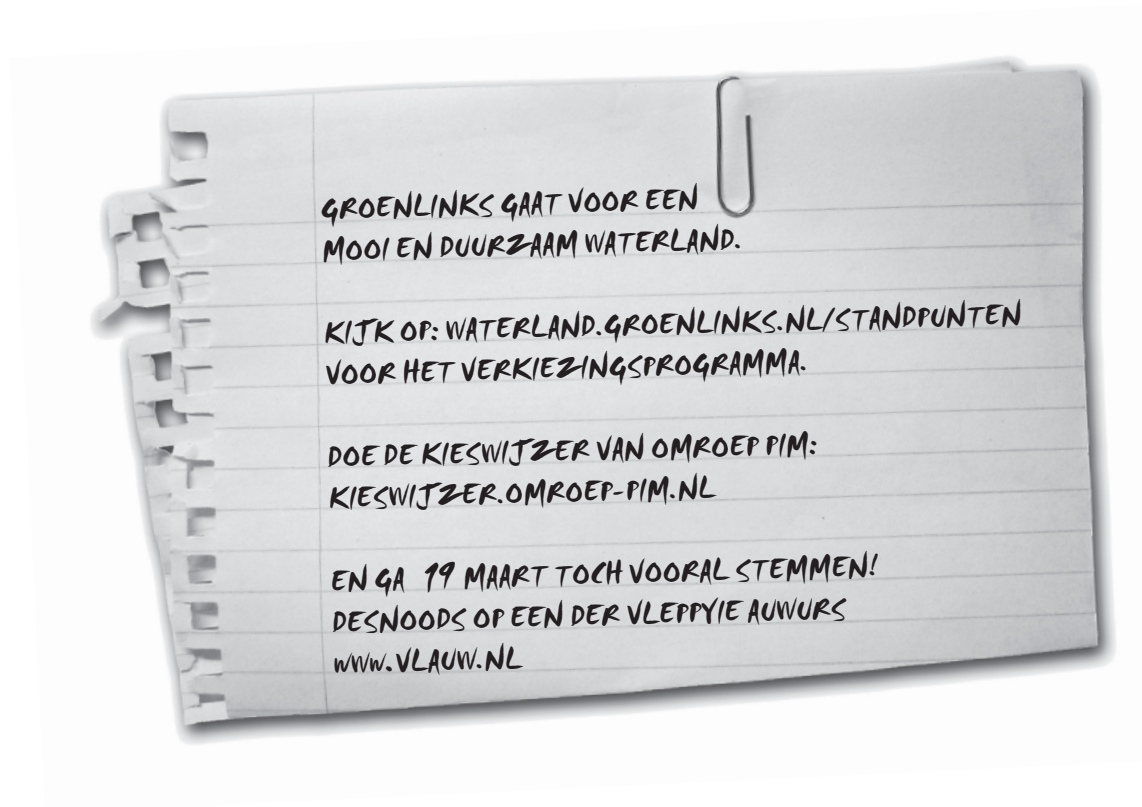 GROENLINKS GAAT VOOR EEN
MOOI EN DUURZAAM WATERLAND.
KIJK OP: WATERLAND.GROENLINKS.NL/STANDPUNTEN
VOOR HET VERKIEZINGSPROGRAMMA.
DOE DE KIESWIJZER VAN OMROEP PIM:
KIESWIJZER.OMROEP-PIM.NL
EN GA 19 MAART TOCH VOORAL STEMMEN!
DESNOODS OP EEN DER VLEPPYIE AUWURS
WWW.VLAUW.NL